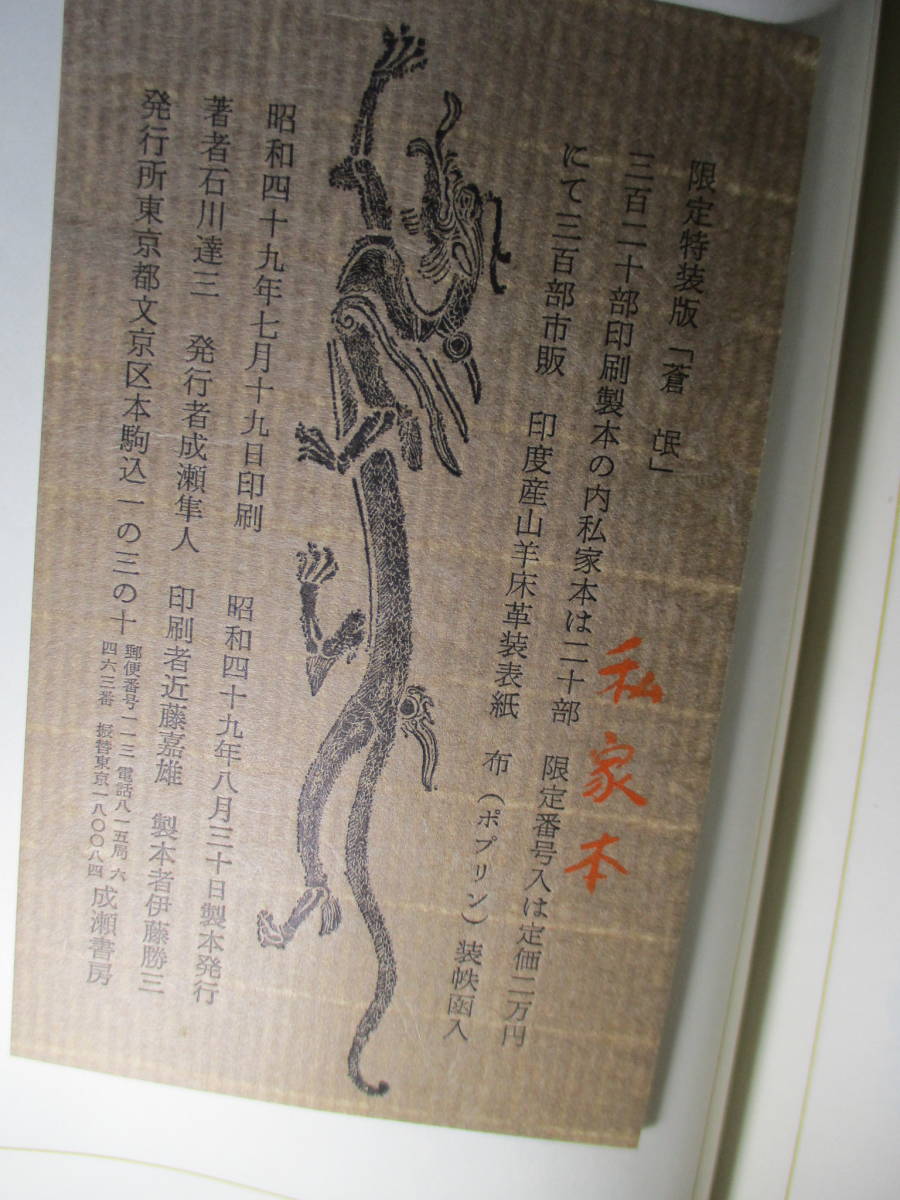 限定特装版「蒼 氓」
三百二十部印刷製本の内私家本は二十部 限定番号入は定価二万円
にて三百部市販 印度産山羊床革装表紙 布(ポプリン)装帙函入
私家本
昭和四十九年七月十九日印刷 昭和四十九年八月三十日製本発行
著者石川達三 発行者成瀬隼人 印刷者近藤嘉雄 製本者伊藤勝三
発行所東京都文京区本駒込一の三の十 郵便番号一一三 電話八一五局六
四六三番 振替東京一八〇〇八四 成瀬書房